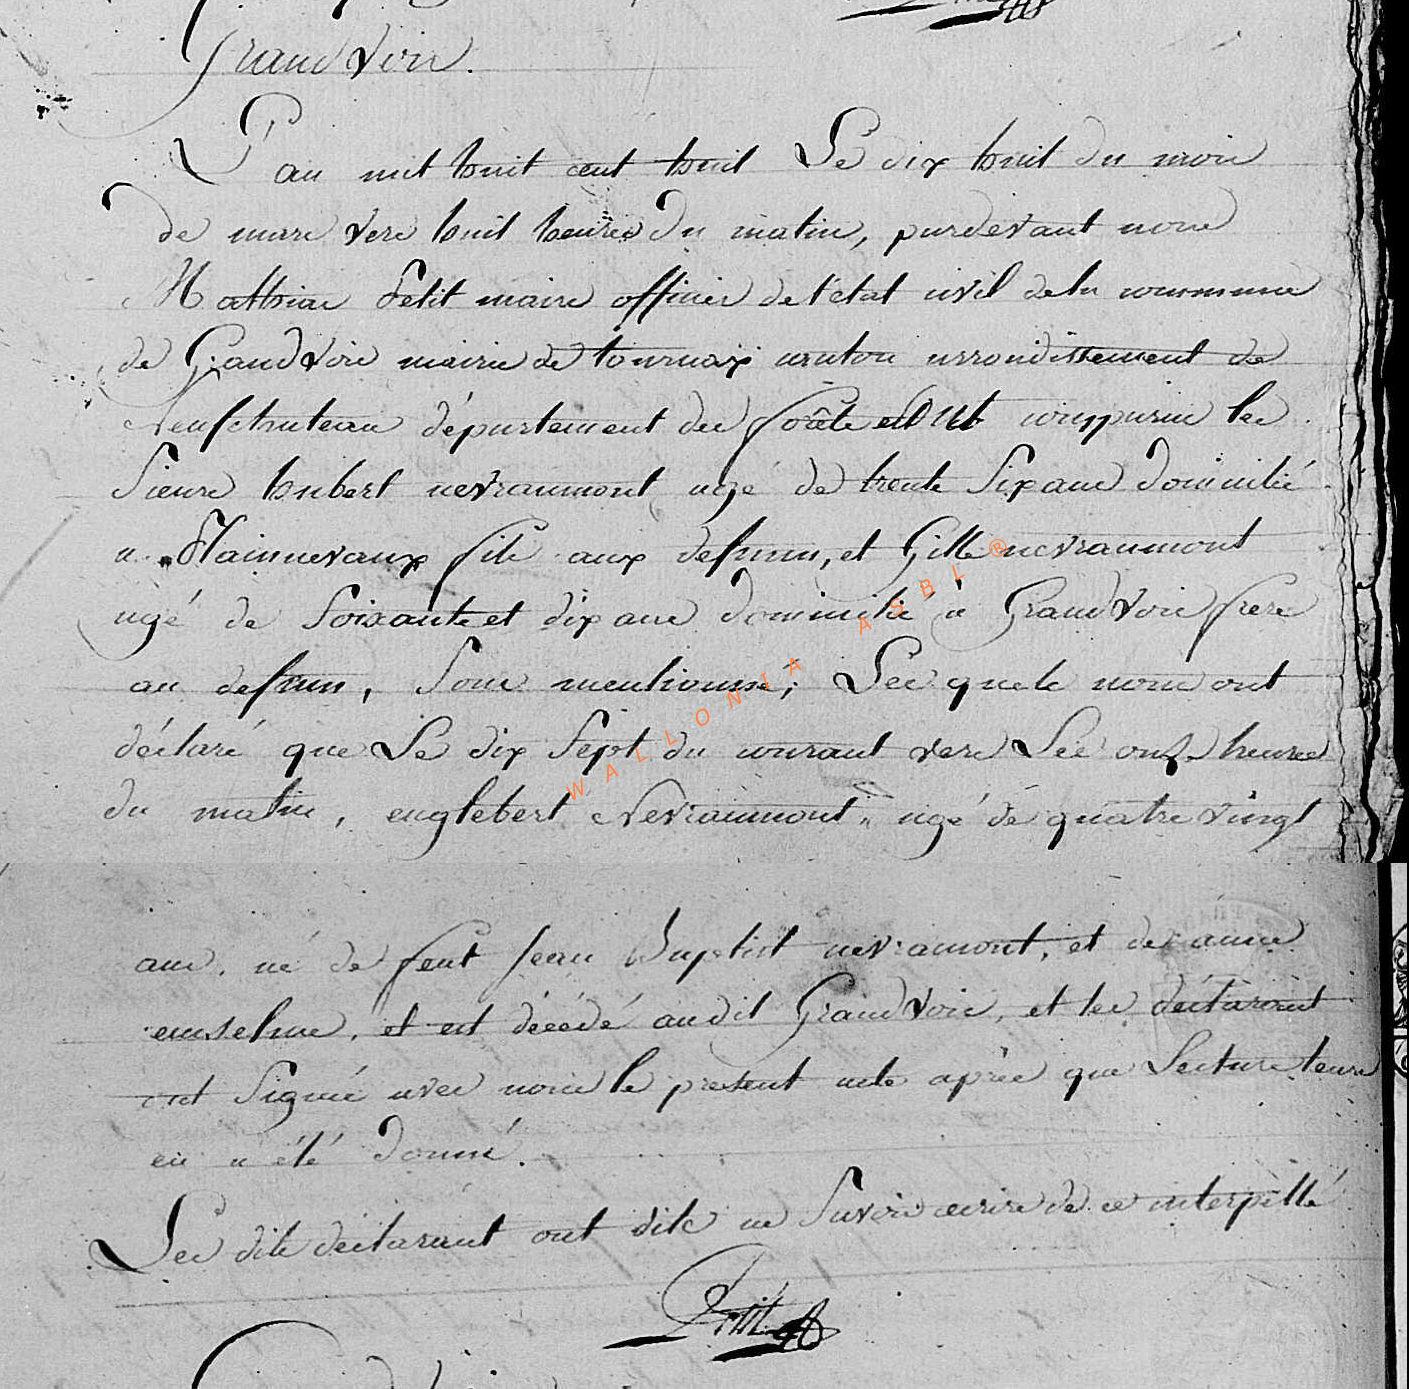 Grandvoir.
L'an mil huit cent huit Le dix huit du mois
de mars vers huit heures du matin, pardevant nous
Mathias Petit maire officier de l'état civil de la commune
de Grandvoir mairie de tournay canton arrondissement de
Neufchateau département des forêts est comparus les
Sieurs hubert nevraumont agé de trente Six ans domicilié
a Hamnevaux fils aux defunn, et Gille nevraumont
agé de Soixante et dix ans domicilié à Grandvoir frere
au defunn, Sous mentionné; Les quels nous ont
déclaré que Le dix Sept du courant vers Les onze heures
du matin, englebert Nevraumont agé de quatre vingt
ans, né de feut Jean Baptist nevramont, et de anne
emselme, et est décédé audit Grandvoir, et les déclarant
ont Signés avec nous le present acte aprés que Lecture leurs
en a été donné.
Les dits déclarant ont dits ne Savoir ecrire de ce interpéllé
Petit
WALLONIA ASBL ®